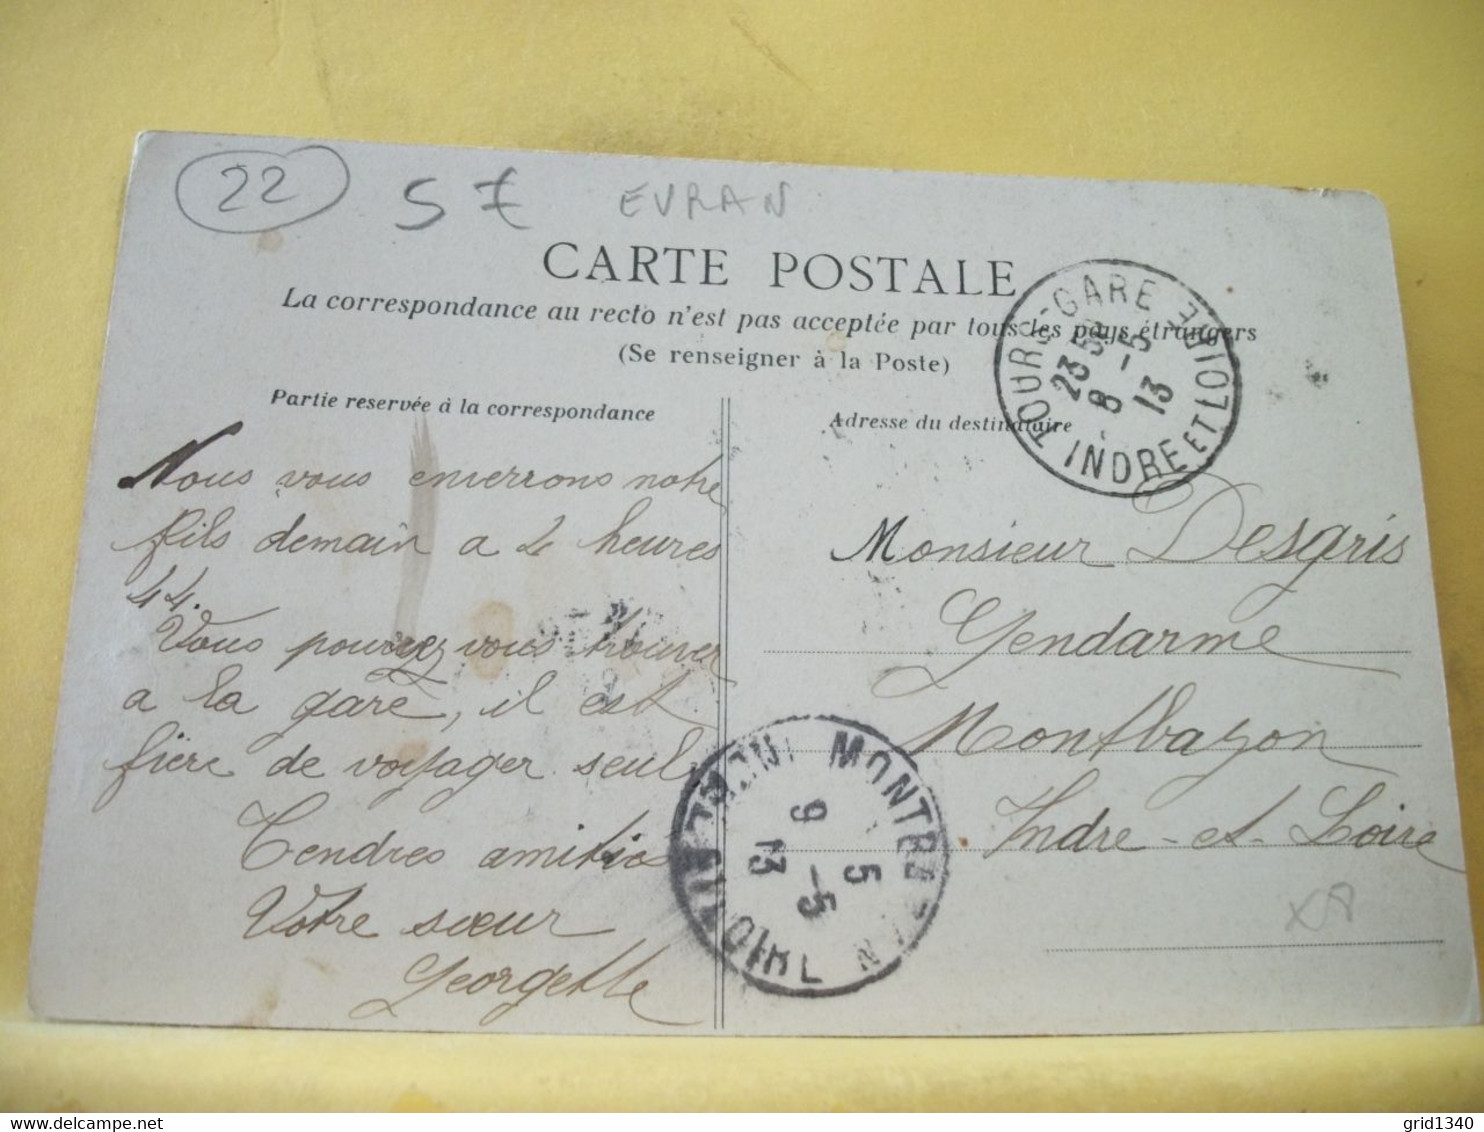 22 5 € EVRAN
CARTE POSTALE
La correspondance au recto n'est pas acceptée par tous les pays étrangers
(Se renseigner à la Poste)
Partie reservée à la correspondance
Adresse du destinataire
TOURS-GARE
INDRE ET LOIRE
23 50
8 - 5
13
Nous vous enverrons notre
fils demain a 2 heures
44.
Vous pourrez vous trouver
a la gare, il est
fière de voyager seul
Tendres amitiés
Votre sœur
Georgette
Monsieur Desgris
Gendarme
Montbazon
Indre-et-Loire
MONTBAZON
5
9 - 5
13
grid1340